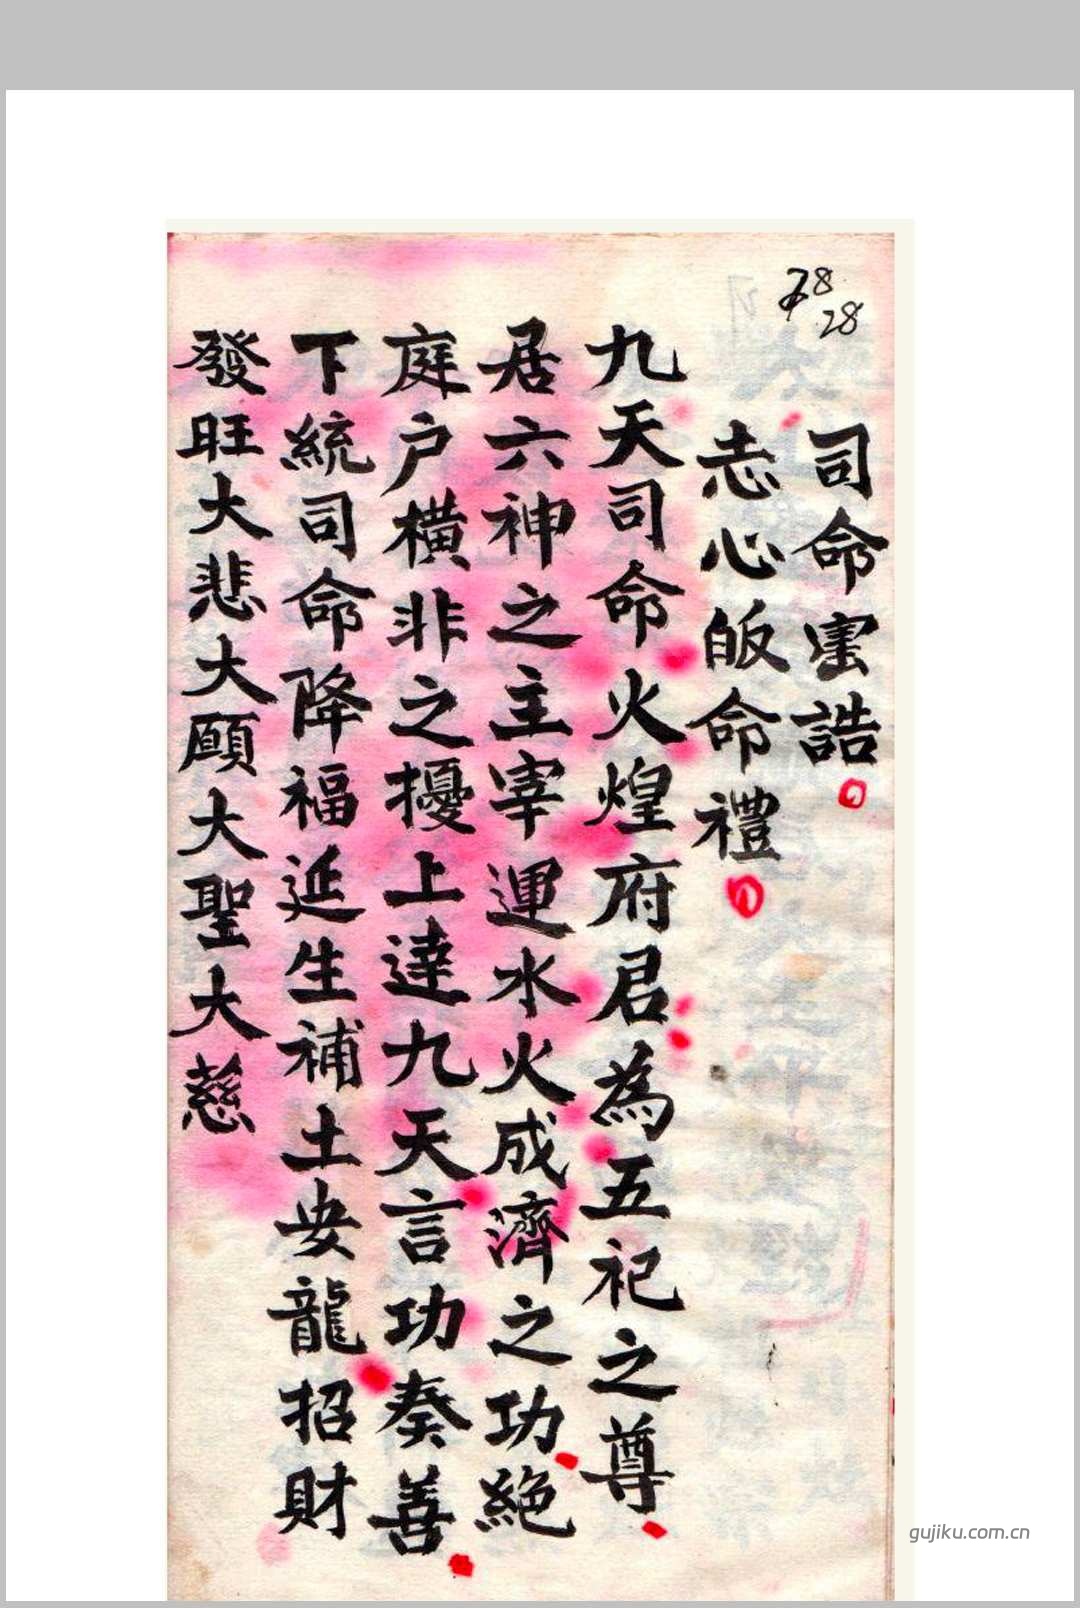 28
司命寶誥
志心皈命禮
九天司命火煌府君為五祀之尊
居六神之主宰運水火成濟之功絕
庭户橫非之擾上達九天言功奏善
下統司命降福延生補土安龍招財
發旺大悲大願大聖大慈
gujiku.com.cn